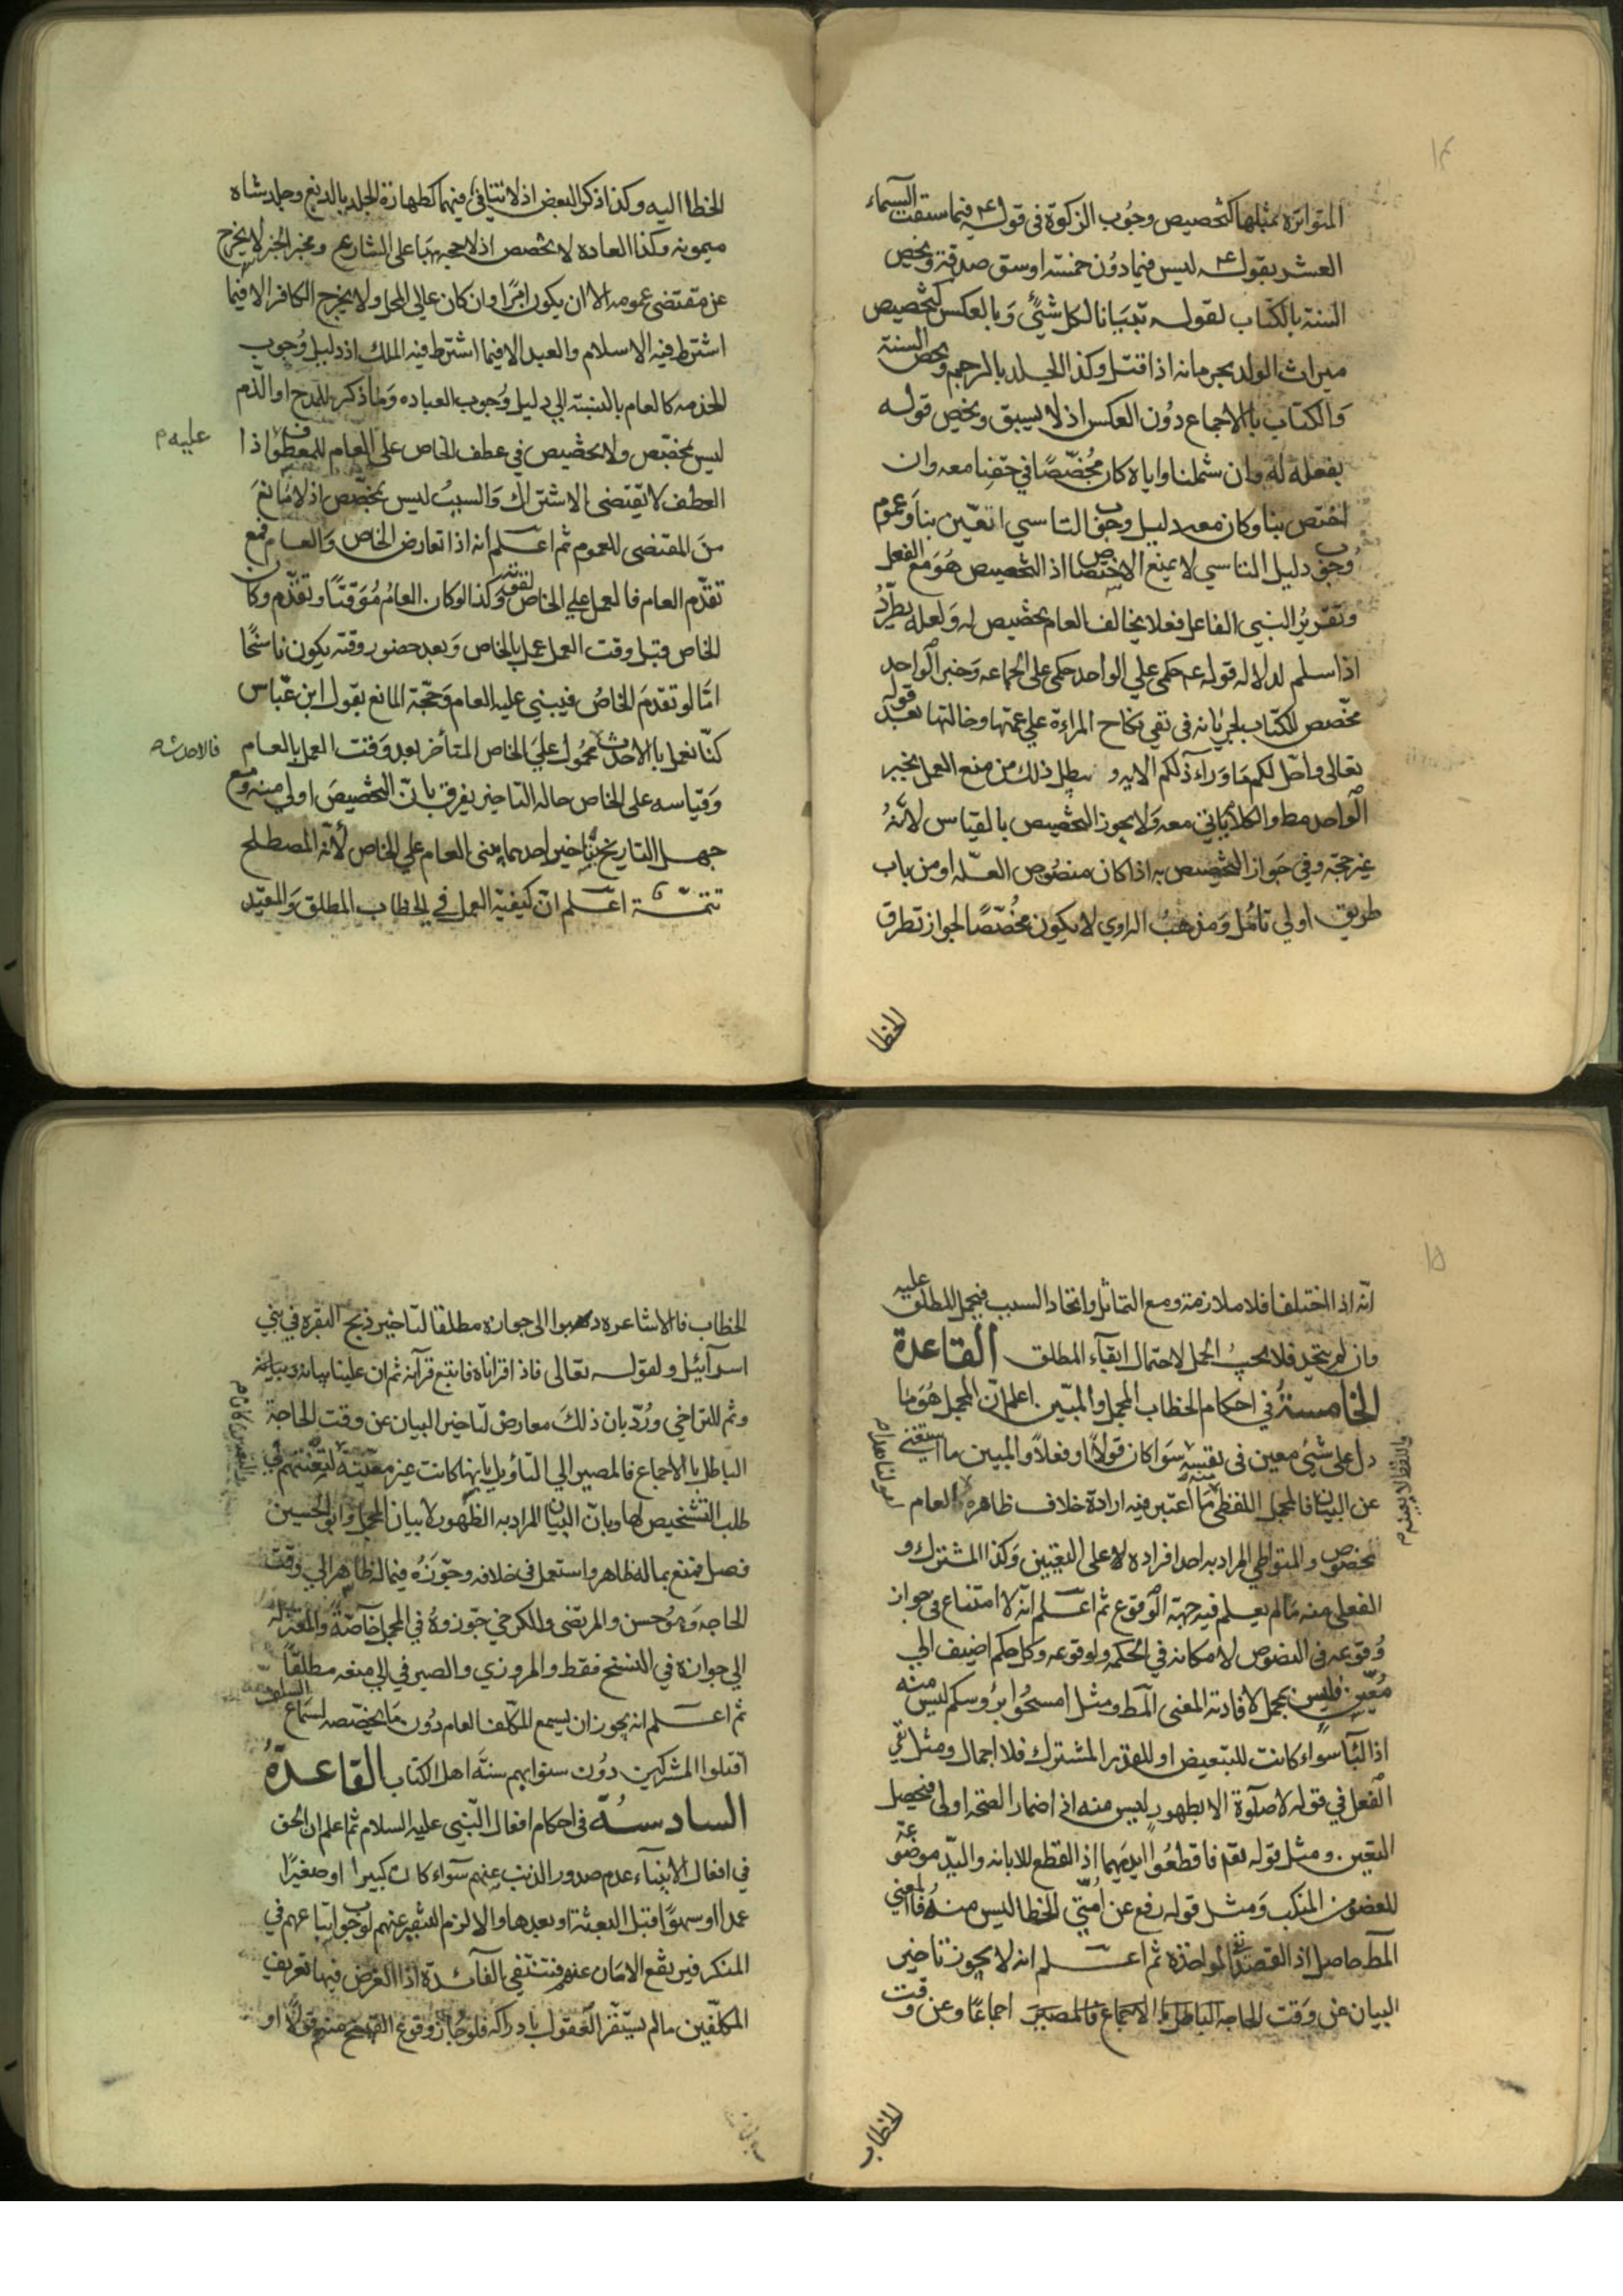 ١٤
المتواترة بمثلها كتخصيص وجُوب الزكوة في قوله ع فيما سقت السماء
العشر بقوله ع ليس فيما دُون خمسة اوسق صدقة ويخص
السنة بالكتاب لقوله تبيانا لكل شئ وَبالعكس كتخصيص
ميراث الولد بحرمانه اذا قتل وكذا الجلد بالرجم ويخص السنة
وَالكتاب بالاجماع دوُن العكس اذ لا يسبق ويخص قوله
بفعله له وان شملنا واياه كان مُخصّصًا في حقنا معه وان
اختص بنا وكان معه دليل وجوب التاسي تعّين بنا وَعموم
وُجوب دليل التاسي لا يمنع الاختصاص اذ التخصيص هَو مع الفعل
وتقريرُ النبي الفاعل فعلا يخالف العام تخصيص له وَلعله يطّردُ
اذا سلم لدلالة قوله عم حكمي علي الواحد حكمي على الجماعه وَخبر الواحد
مخّصص للكتاب لجريانه في نفي نكاح المراءة علي عمتها وخالتها بعد قوله
تعالى واحّل لكم مَا وَراءَ ذلكم الايه و بطل ذلك من منع العمل بخبر
الواحد مط والكلام ياتي معه وَلا يجوز التخصيص بالقياس لأنّهُ
غير حجّة وفي جَواز التخصيص به اذا كان منصُوص العلّه او من باب
طريق اولي تامُل وَمذهبُ الراوي لا يكون مخُصّصًا لجواز تطرق
الخطا
الخطا اليه وكذا ذكر البعض اذ لا تنافي فيهما كطهارة الجلد بالدبغ وجلد شاه
ميمونه وَكذا العاده لا تخصص اذ لا حجه بهَا على الشارع ومخبر الخبر لا يخرج
عن مقتضى عمومه الا ان يكون امرًا وان كان عالي المحل ولا يخرج الكافر الا فيما
اشترط فيه الاسلام والعبد الا فيما اشترط فيه الملك اذ دليل وُجوب
الخذمه كالعام بالنسبة الي دليل وُجوب العباده وَما ذكر للمدح او الذّم
ليس بمخصّص ولا تخصيص في عطف الخاص على العام للمعطوف اذا
عليه م
العطف لا يقتضى الاشتراك وَالسببُ ليس بمخصّص اذ لا مَانعَ
منَ المقتضى للعموم ثم اعلم أنه اذا تعارض الخاص وَالعام فمع
تقدّم العام فالعمل علي الخاص لقوته وكذا لو كان العامُ مُوَقتًا وتقدّم وكان
الخاص قبل وقت العمل عمل بالخاص وَبعد حضور وقته يكون ناسخًا
امّا لو تقدمَ الخاصُ فيبني عليه العام وَحجّة المانع بقول ابن عّباس
كنّا نعمل بالاحدث محمُول عليَ الخاص المتأخر بعد وَقت العمل بالعام
فالاحدث ص
وَقياسه على الخاص حاله التاخير يفرق بانّ التخصيصَ اولي منه وَمع
جهل التاريخ بتاخير احدهما يبنى العام علي الخاص لأنّه المصطلح
تتمّة اعلم انّ كيفية العمل في الخطاب المطلق وَالمقيّد
١٥
انّه اذا اختلفا فلا ملازمة ومع التماثل واتحاد السبب فيحمل المطلق عليه
وان لم يتحد فلا يجبُ الحمل لاحتمال ابقآء المطلق القاعدة
الخامسةُ في احكام الخطاب المجمل والمبّين اعلم انّ المجمل هُوَ مَا
دل على شئ معين في نفسه سَواء كان قولاً او فعلاً والمبين ما استغني
عن البيان فالمجمل اللفظي مَا اعتبر فيه ارادة خلاف ظاهره كالعام
واللفظ لا يعينه م
بمخصوص والمتواطي المراد به احد افراده لا على التعيين وَكذا المشترك و
الفعلي منه مَا لم يعلم فيه جهة الوقوع ثم اعلم انّه لا امتناع في جواز
وُقوعه في النصوص لامكانه في الحكمه ولوقوعه وكل حكم اضيف الي
مُعّين فليس بمجمل لافادته المعنى المط ومثل امسحُوا برُوسكم ليس منه
اذ البَا سواء كانت للتبعيض او للقدر المشترك فلا اجمال ومثل نفي
الفعل في قوله لا صلوة الا بطهور ليس منه اذ اضمار الصحّة اولى فيحصل
التعين ومثل قوله تعم فاقطعُوا ايديَهما اذ القطع للابانه واليّد موضوعة
للعضو من المنكب وَمثل قوله رفع عن اُمّتي الخطا ليس منهُ فالمعني
المط حاصل اذ القصد نفي المؤاخذة ثم اعلم انه لا يجوز تاخير
البيان عن وَقت الحاجه الباطل بالاجماع فالمصير اجماعًا وعن وقت
الخطاب
الخطاب فالاشاعره ذهبوا الى جوازه مطلقا لتاخير ذبح البقره في بني
اسرآئيل ولقوله تعالى فاذا قراناه فاتبع قرآنه ثم ان علينا بيانه
وثم للتراخي ورُدّ بان ذلكَ معارض لتاخير البيان عن وقت الحاجة
الباطل بالاجماع فالمصير الي التأويل بانها كانت غير معيّنة لتعنتهم في
طلب التشخيص لها وبانّ البيان المراد به الظهور لا بيان المجمل وَابو الحسين
فصل فمنع بما له ظاهر واستعمل في خلافه وجوّزَهُ فيما له ظاهر الي وقت
الحاجه وَابو حسن والمرتضى والكرخي جوّزوهُ في المجمل خاصّةً والمعتزله
الي جوازه في النسخ فقط والمروزي والصيرفي الي منعه مطلقاً
ثم اعلم انه يجوز ان يسمع المكّلف العام دُون مَا يخصّصه لسماع
اقتلوا المشركين دوُن سنوا بهم سنّةَ اهل الكتاب القاعدةُ
السادسةُ في احكام افعال النّبي عليه السلام ثم اعلم ان الحق
في افعال الأنبيآء عدم صدور الذنب عنهم سَواء كان كبيرا او صغيرًا
عمدا او سهوًا قبل البعثة او بعدها والا لزم التنفير عنهم لوجوب اتباعهم في
المنكر فيرتفع الامَان عنهم فتنتفي الفآئدة اذ الغرض فيها تعريف
المكلّفين مالم يستقل العقول بادراكه فلو جاز وقوع القبيح منهم قولاً او